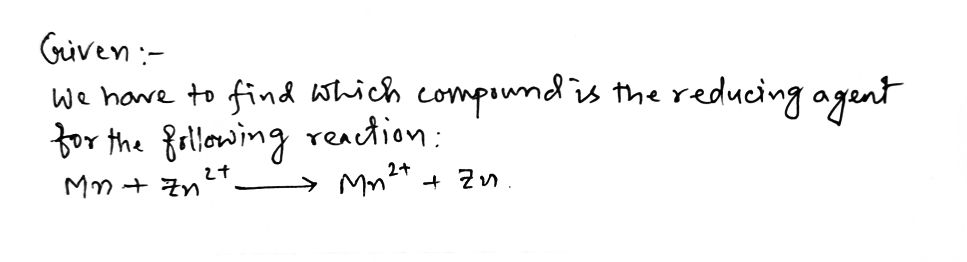 Given :-
We have to find which compound is the reducing agent
for the following reaction:
Mn + Zn²⁺ ⟶ Mn²⁺ + Zn.